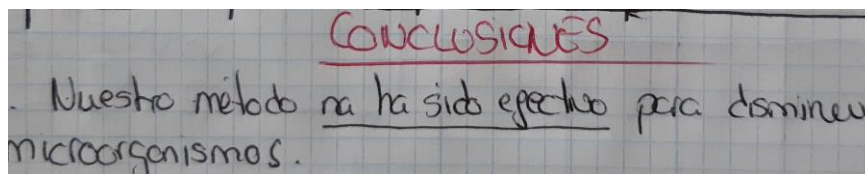 CONCLUSIONES
. Nuestro método na ha sido efectivo para
microorganismos.